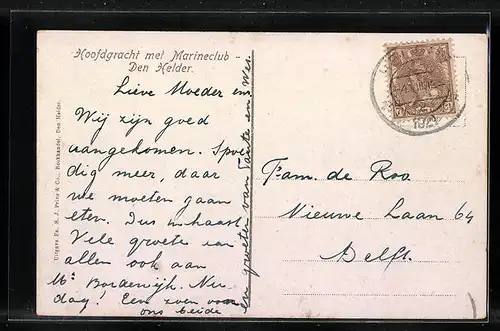 Hoofdgracht met Marineclub -
Den Helder.
Lieve Moeder en
Wij zijn goed
aangekomen. Spoe
dig meer, daar
we moeten gaan
eten. Dus in haast.
Vele groeten aan
allen ook aan
Mr Bordewijk. Nu
dag! Een zoen van
ons beide
en groeten van Tante en
Uitgave Fa. S. J. Prins & Co., Boekhandel, Den Helder.
Fam. de Roo.
Nieuwe Laan 64
Delft.